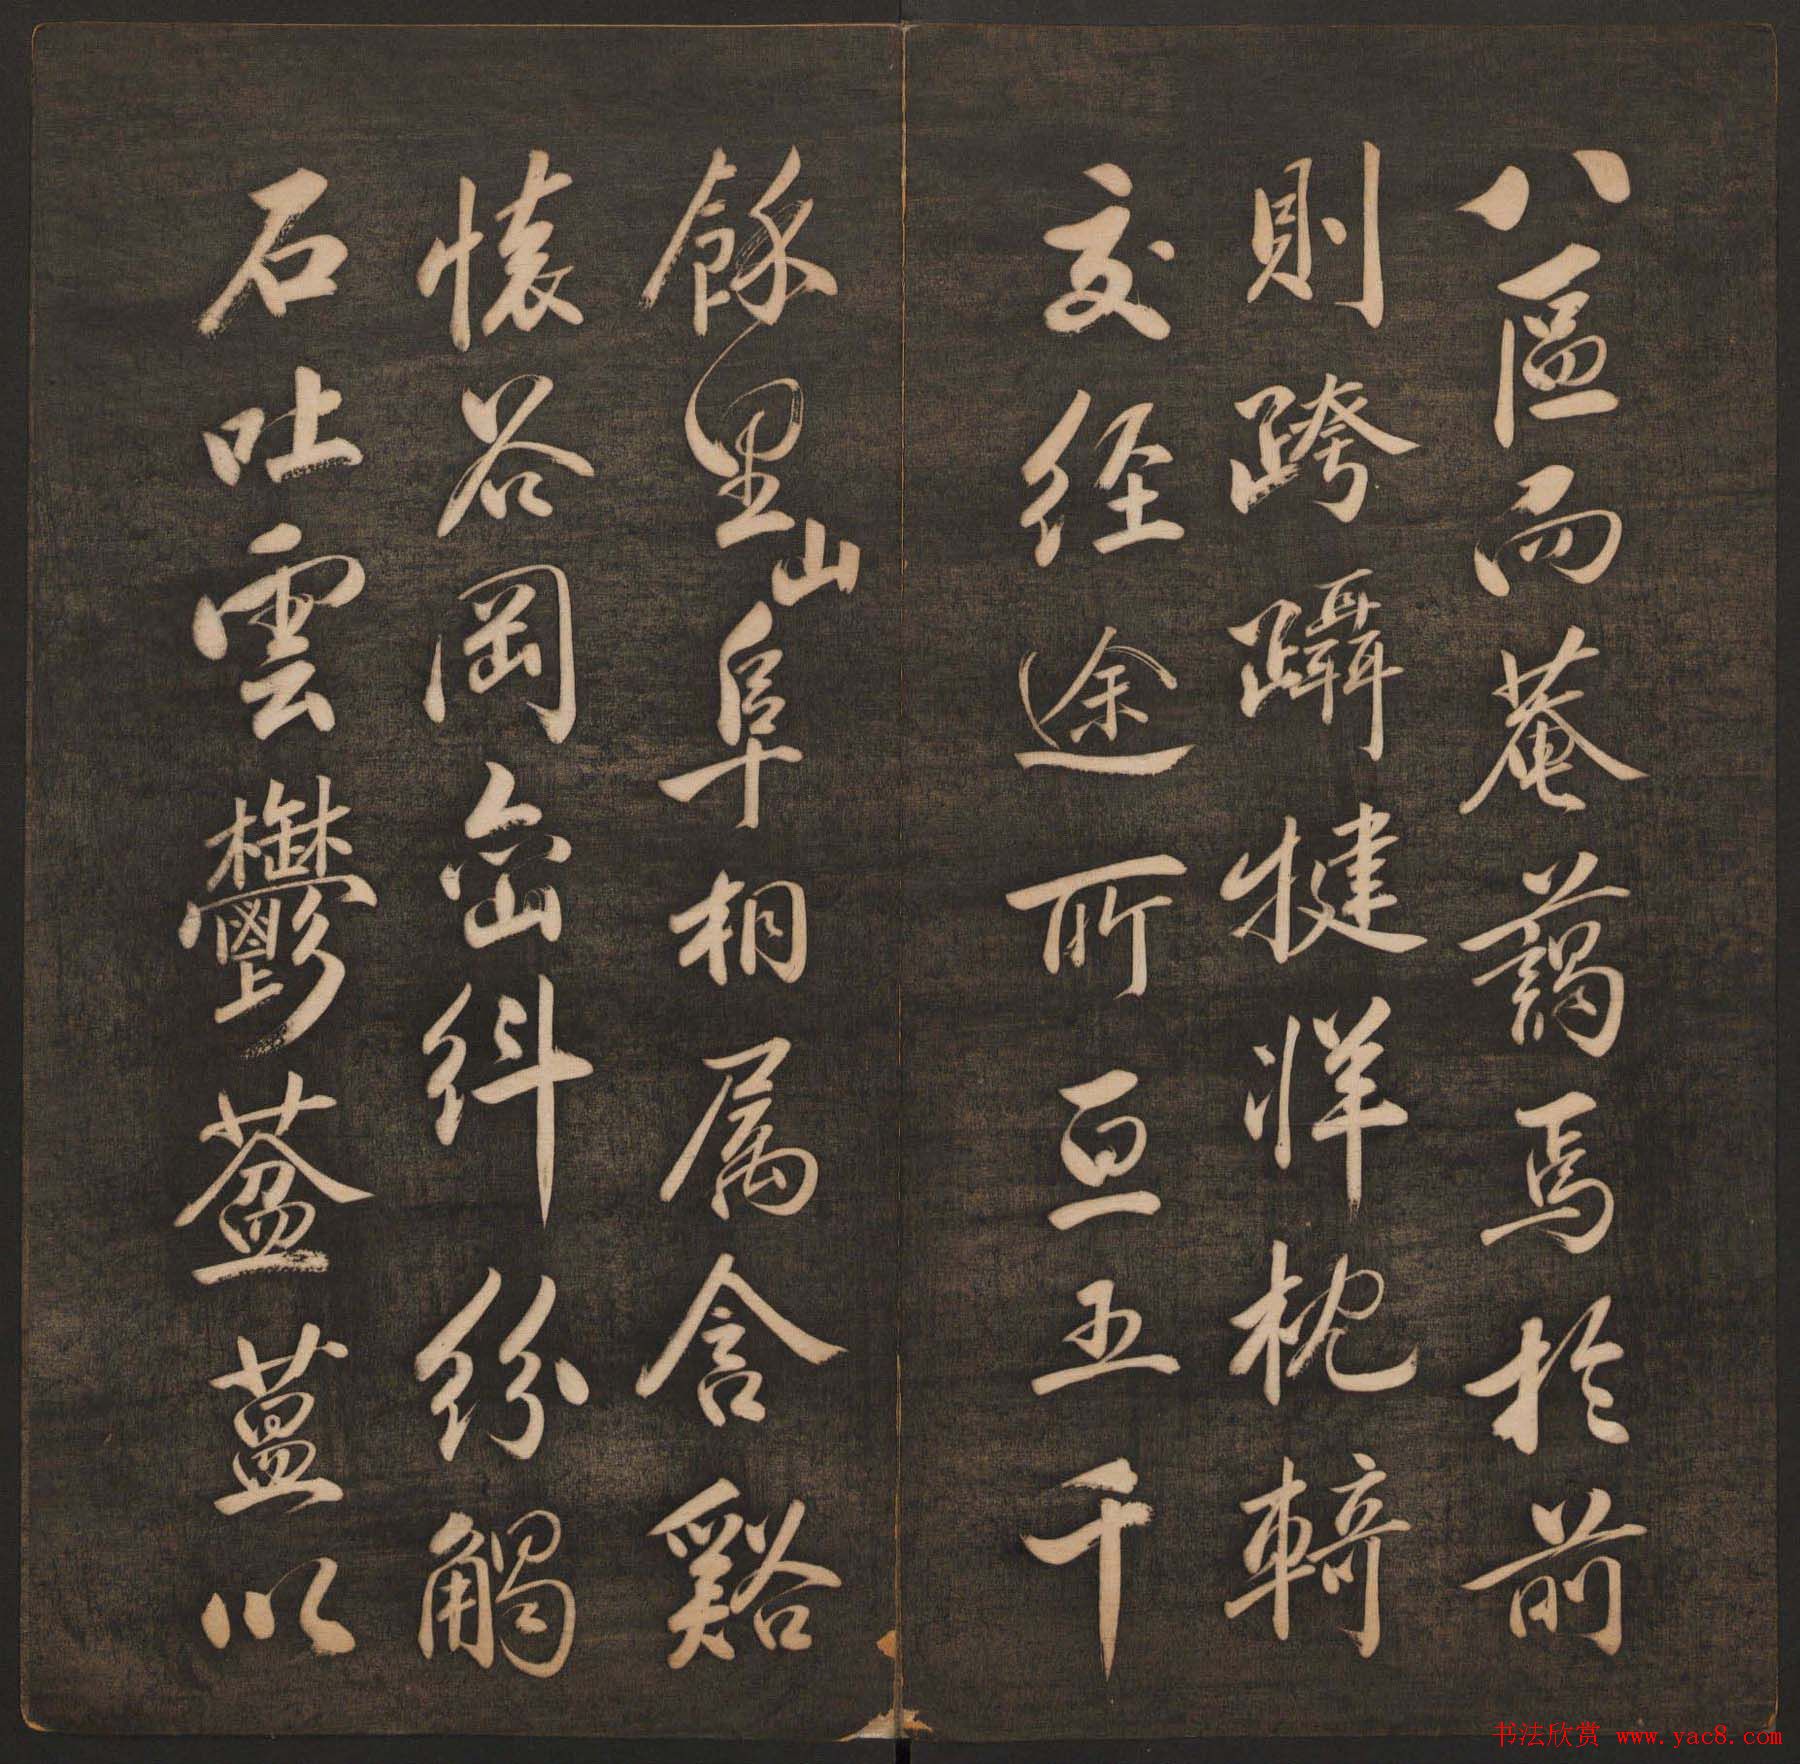 八區而菴藹焉於前
則跨躡犍牂枕輢
交经途所亘五千
餘里山阜相属含谿
懷谷岡峦糾紛觸
石吐雲鬱葐蒀以
书法欣赏 www.yac8.com